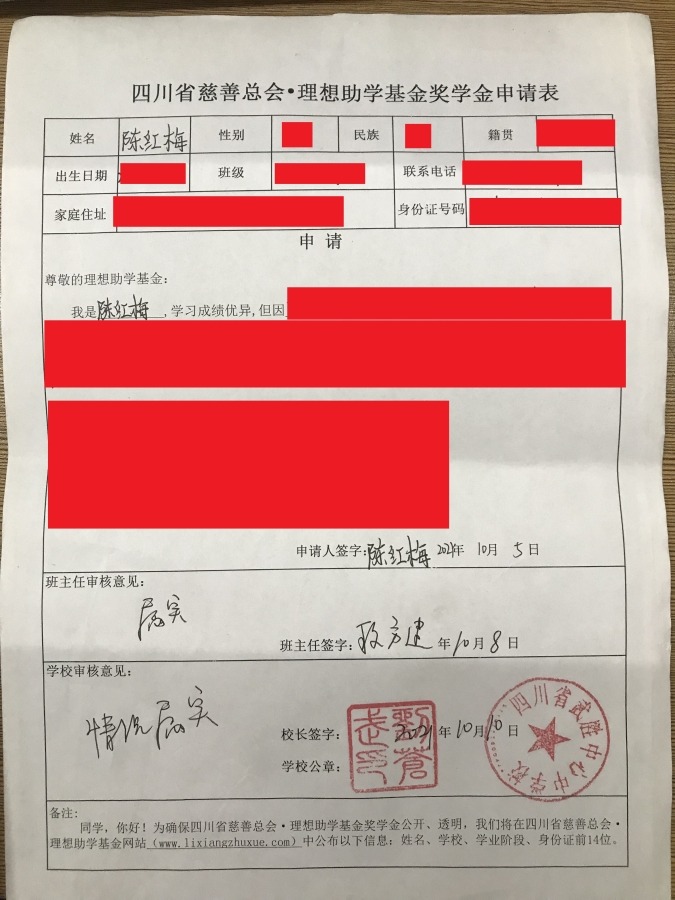 四川省慈善总会•理想助学基金奖学金申请表
姓名 陈红梅 性别 民族 籍贯
出生日期 班级 联系电话
家庭住址 身份证号码
申请
尊敬的理想助学基金：
我是陈红梅,学习成绩优异,但因
申请人签字:陈红梅 2021年 10月 5日
班主任审核意见:
属实
班主任签字: 年10月8日
学校审核意见:
情况属实
校长签字: 2021年10月10日
学校公章:
四川省武胜中心中学校
备注:
同学，你好！为确保四川省慈善总会•理想助学基金奖学金公开、透明，我们将在四川省慈善总会•
理想助学基金网站（www.lixiangzhuxue.com）中公布以下信息：姓名、学校、学业阶段、身份证前14位。